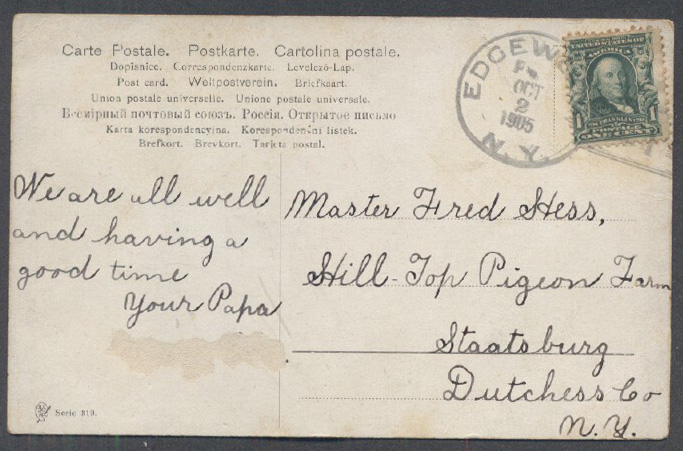 Carte Postale. Postkarte. Cartolina postale.
Dopisnice. Correspondenzkarte. Levelező-Lap.
Post card. Weltpostverein. Briefkaart.
Union postale universelle. Unione postale universale.
Всемірный почтовый союзъ. Россія. Открытое письмо
Karta korespondencyjna. Korespondenčni listek.
Brefkort. Brevkort. Tarjeta postal.
We are all well
and having a
good time
Your Papa
Serie 319.
EDGEW
OCT
2
1905
N.Y.
UNITED STATES OF
AMERICA
1 1
POSTAGE
ONE CENT
Master Fred Hess,
Hill-Top Pigeon Farm
Staatsburg
Dutchess Co
N.Y.